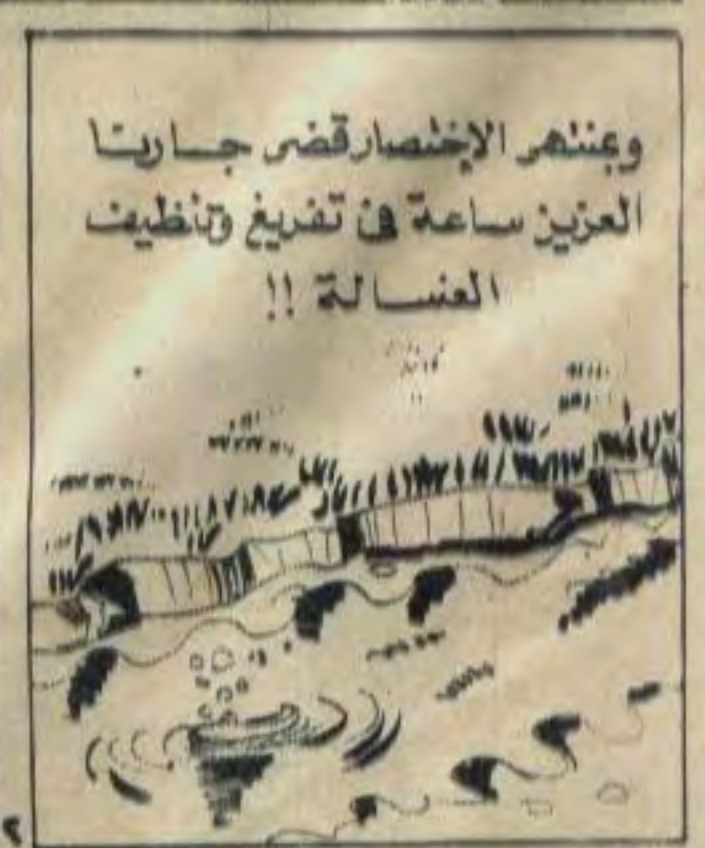 وبمنتهى الإختصار قضى جارنا
العزيز ساعة فى تفريغ وتنظيف
الغسالة !!